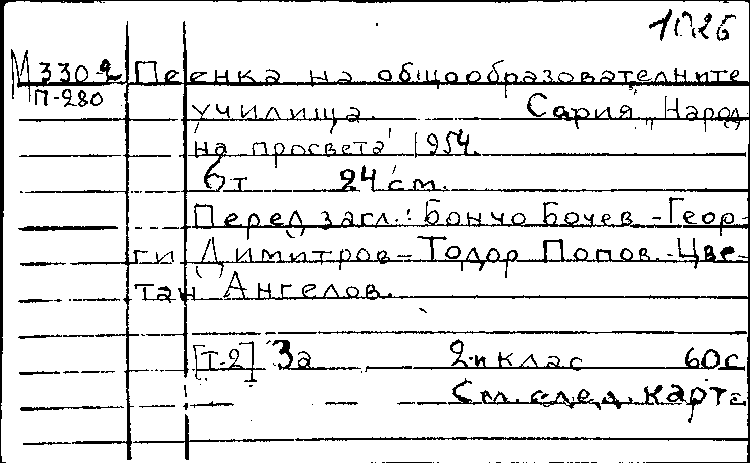 1026
М 330-2 Пеенка на общообразователните
П-280
училища. Сория „Народ
на просвета" 1954.
6т 24 см.
Перед загл.: Бончо Бочев - Геор-
ги Димитров - Тодор Попов - Цве-
тан Ангелов.
[Т-2] За 2-и клас 60с
См. след. карта